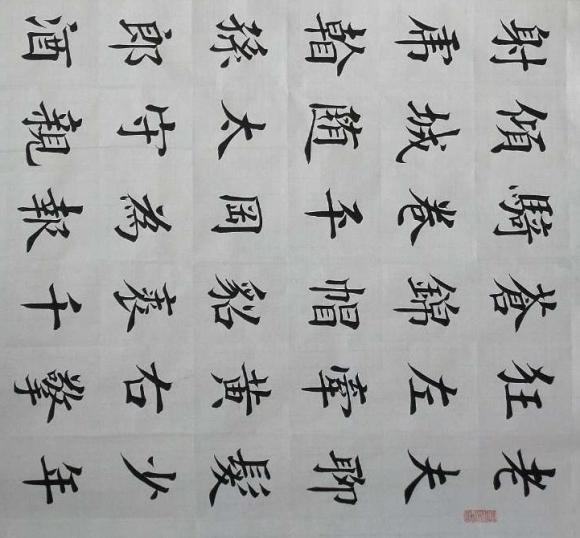 老夫聊髮少年
狂左牽黃右擎
蒼錦帽貂裘千
騎卷平岡為報
傾城隨太守親
射虎看孫郎酒